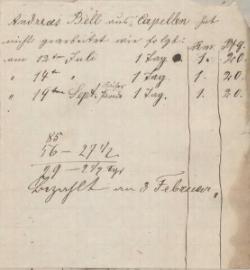 Andreas Bill aus Capellen hat
nicht gearbeitet wie folgt:
Mar. Pfg.
am 12ten Juli 1 Tag 1. 20.
" 14ten " 1 Tag. 1. 20.
" 19ten Sept. 1 Tag. 1. 20.
85
56 – 27 1/2
29 – 2 1/2
Bezahlt am 3 Februar.